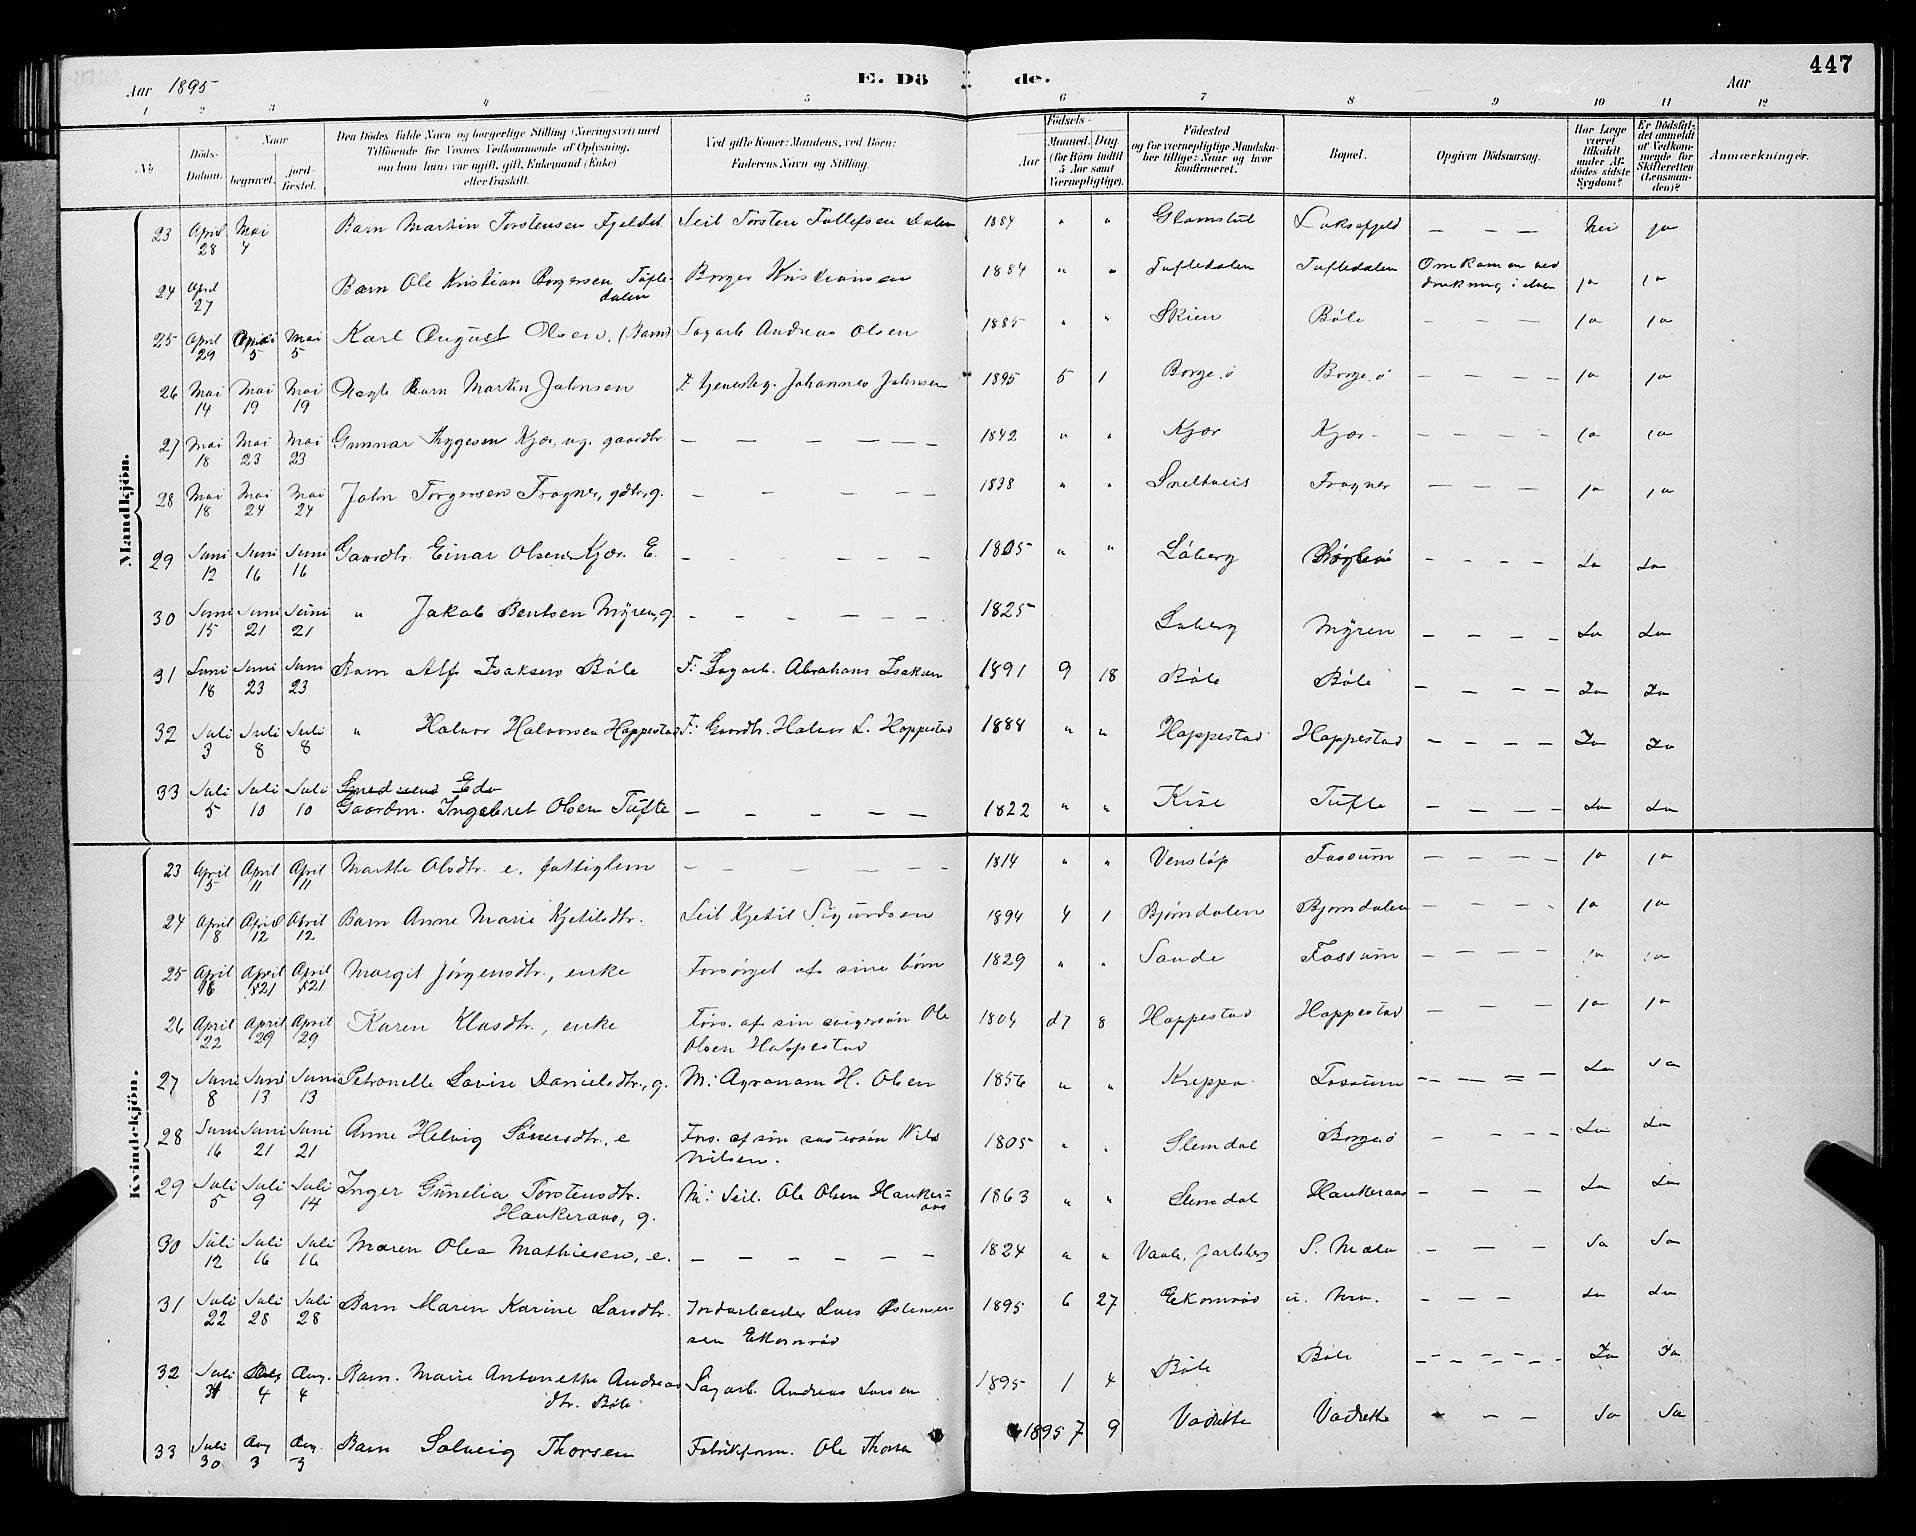 447
Aar 1895 E. Dö de. Aar
1 2 3 4 5 6 7 8 9 10 11 12
No Döds-Datum. Naar begravet. jord-fæstet. Den Dödes fulde Navn og borgerlige Stilling (Næringsvei) med Tilföiende for Voxnes Vedkommende af Oplysning, om han (hun) var ugift, gift, Enkemand (Enke) eller fraskilt. Ved gifte Koner: Mandens, ved Börn: Faderens Navn og Stilling Födsels- Aar Maaned. Dag (for Börn indtil 5 Aar samt Værnepligtige). Födested og for værnepligtige Mandska-ber tillige: Naar og hvor konfirmeret. Bopæl. Opgiven Dödsaarsag. Har Læge været tilkaldt under Af-dödes sidste Sygdom? Er Dödsfal-det anmeldt af Vedkom-mende for Skifteretten (Lensman-den)? Anmærkninger.
Mandkjön.
23 April 28 Mai 4 Barn Martin Torstensen Fjeldet Leil Torsten Tollefsen Dalen 1884 " " Glamslut Luksefjeld — — — Nei ja
24 April 27 Barn Ole Kristian Borgersen Tufte-dalen Borger Kristiansen 1884 " " Tufledalen Tufledalen Omkommen ved drukning i elven ja ja
25 April 29 Mai 5 Mai 5 Karl August Olsen. (Barn) Sagarb Andreas Olsen 1885 " " Skien Böle — — — — ja ja
26 Mai 14 Mai 19 Mai 19 Uægte Barn Martin Johnsen F. tjenesteg. Johannes Johnsen 1895 5 1 Borge.ö Borge.ö — — — — ja ja
27 Mai 18 Mai 23 Mai 23 Gunnar Thygesen Kjær, ug. gaardbr — — — — — — 1842 " " Kjær Kjær — — — — ja ja
28 Mai 18 Mai 24 Mai 24 John Torgersen Frogner, gdbr, g. — — — — — 1838 " " Sneltveis Frogner — — — — ja ja
29 Juni 12 Juni 16 Juni 16 Gaardbr. Einar Olsen Kjær. E. — — — — 1805 " " Löberg — — — — Ja Ja
30 Juni 15 Juni 21 Juni 21 " Jakob Bentsen Myren, g. — — — — — — 1825 Löberg Myren — — — — Ja Ja
31 Juni 18 Juni 23 Juni 23 Barn Alf Isaksen Böle F: Sagarb. Abraham Isaksen 1891 9 18 Böle Böle — — — — Ja Ja
32 Juli 3 Juli 8 Juli 8 " Halvor Halvorsen Hoppestad F: Gaardbr. Halvor L. Hoppestad 1888 " " Hoppestad Hoppestad — — — — Ja Ja
33 Juli 5 Juli 10 Juli 10 Gaardm. Ingebret Olsen Tufte — — — — — 1822 " " Kise Tufte — — — — Ja Ja
Kvindekjön.
23 April 5 April 11 April 11 Marthe Olsdtr. e. fattiglem — — — — — — 1814 " " Venstöp Fossum — — — — ja ja
24 April 8 April 12 April 12 Barn Anne Marie Kjetilsdtr. Leil Kjetil Sigurdsen 1894 4 1 Bjørndalen Bjorndalen — — — — ja ja
25 April 16 April 21 April 21 Margit Jörgensdtr., enke Forsörget af sine börn 1829 " " Sande Fossum — — — — ja ja
26 April 22 April 29 April 29 Karen Klasdtr., enke Fors. af sin svigersön Ole Olsen Hoppestad 1804 d7 8 Hoppestad Hoppestad — — — ja ja
27 Juni 8 Juni 13 Juni 13 Petronelle Lovise Danielsdtr, g. M: Agronom H. Olsen 1856 " " Kreppa Fossum — — — — Ja Ja
28 Juni 16 Juni 21 Juni 21 Anne Helvig Sörensdtr., e Fors. af sin sösterson Nils Nilsen. 1805 " " Slemdal Borge.ö — — — — Ja Ja
29 Juli 5 Juli 9 Juli 14 Inger Gunelia Torstensdtr. Haukeraas, g. M: Leil. Ole Olsen Hauker=aas 1863 " " Slemdal Haukeraas — — — Ja Ja
30 Juli 12 Juli 16 Juli 16 Maren Olea Mathiesen, e. — — — — — — 1824 " " Vaale, Jarlsberg S. Mæla — — — Ja Ja
31 Juli 22 Juli 28 Juli 28 Barn Maren Karine Larsdtr. Jordarbeider Lars Östensen Ekornröd 1895 6 27 Ekornröd — — — Ja Ja
32 Juli 31 Aug 4 Aug. 4 Barn. Marie Antonette Andreas dtr. Böle Sagarb. Andreas Larsen 1895 1 4 Böle Böle — — — — Ja Ja
33 Juli 30 Aug 3 Aug. 3 Barn Solveig Thorsen Fabrikform. Ole Thorsen 1895 7 9 Vadrette Vadrette — — — Ja Ja